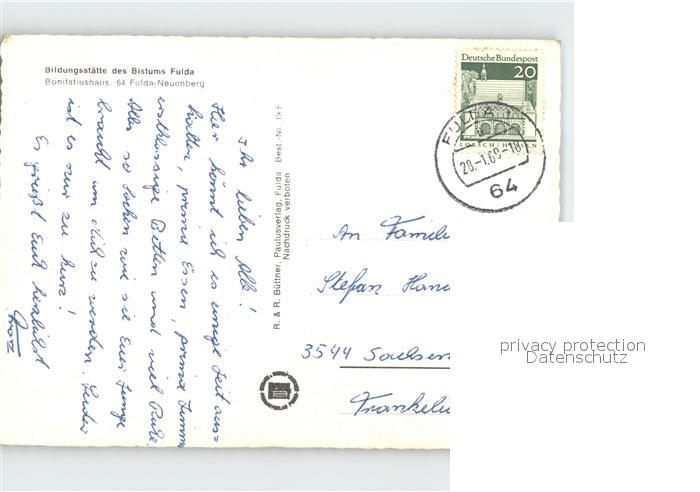 Bildungsstätte des Bistums Fulda
Bonifatiushaus, 64 Fulda-Neuenberg
Ihr lieben Alle!
Hier könnt ich es einige Zeit aus=
halten, prima Essen, prima Zimme
erstklassige Betten und viel Ruhe.
Alles so Sachen wie sie Eure Junge
braucht um alt zu werden. Leider
ist es nur zu kurz!
Es grüßt Euch herzlichst
R. & R. Büttner, Paulusverlag, Fulda Best.-Nr. 19 F
Nachdruck verboten
Deutsche Bundespost
20
LORSCH/HESSEN
FULDA 1
28.-1.69-18
64
An Famili
Stefan
3544 Sachsen
Frankel
privacy protection
Datenschutz